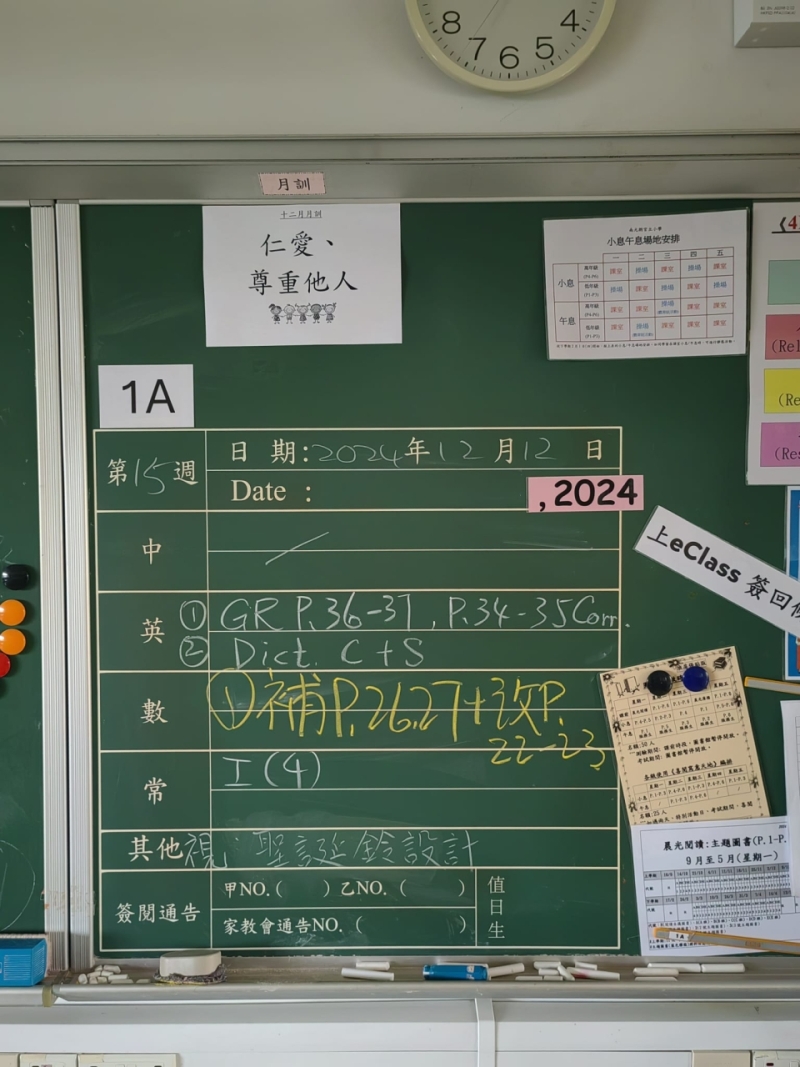 8 7 6 5 4
月訓
十二月月訓
仁愛、
尊重他人
小息午息場地安排
一 二 三 四 五
小息
課室 操場 課室 操場 課室
操場 課室 操場 課室 操場
午息
課室 課室 操場 課室 課室
課室 操場 課室 課室 課室
1A
第15週
日 期:2024年12月12日
Date :
, 2024
中
英
① GR P.36-37 , P.34-35 Corr.
② Dict. C+S
數
① 補P.26,27+改P.
22-23
常
I (4)
其他 視:聖誕鈴設計
簽閱通告
甲NO.( ) 乙NO. ( )
家教會通告NO. ( )
值日生
上eClass 簽回
(Rel
(Re
(Res
晨光閱讀:主題圖書(P.1-P.
9月至5月(星期一)